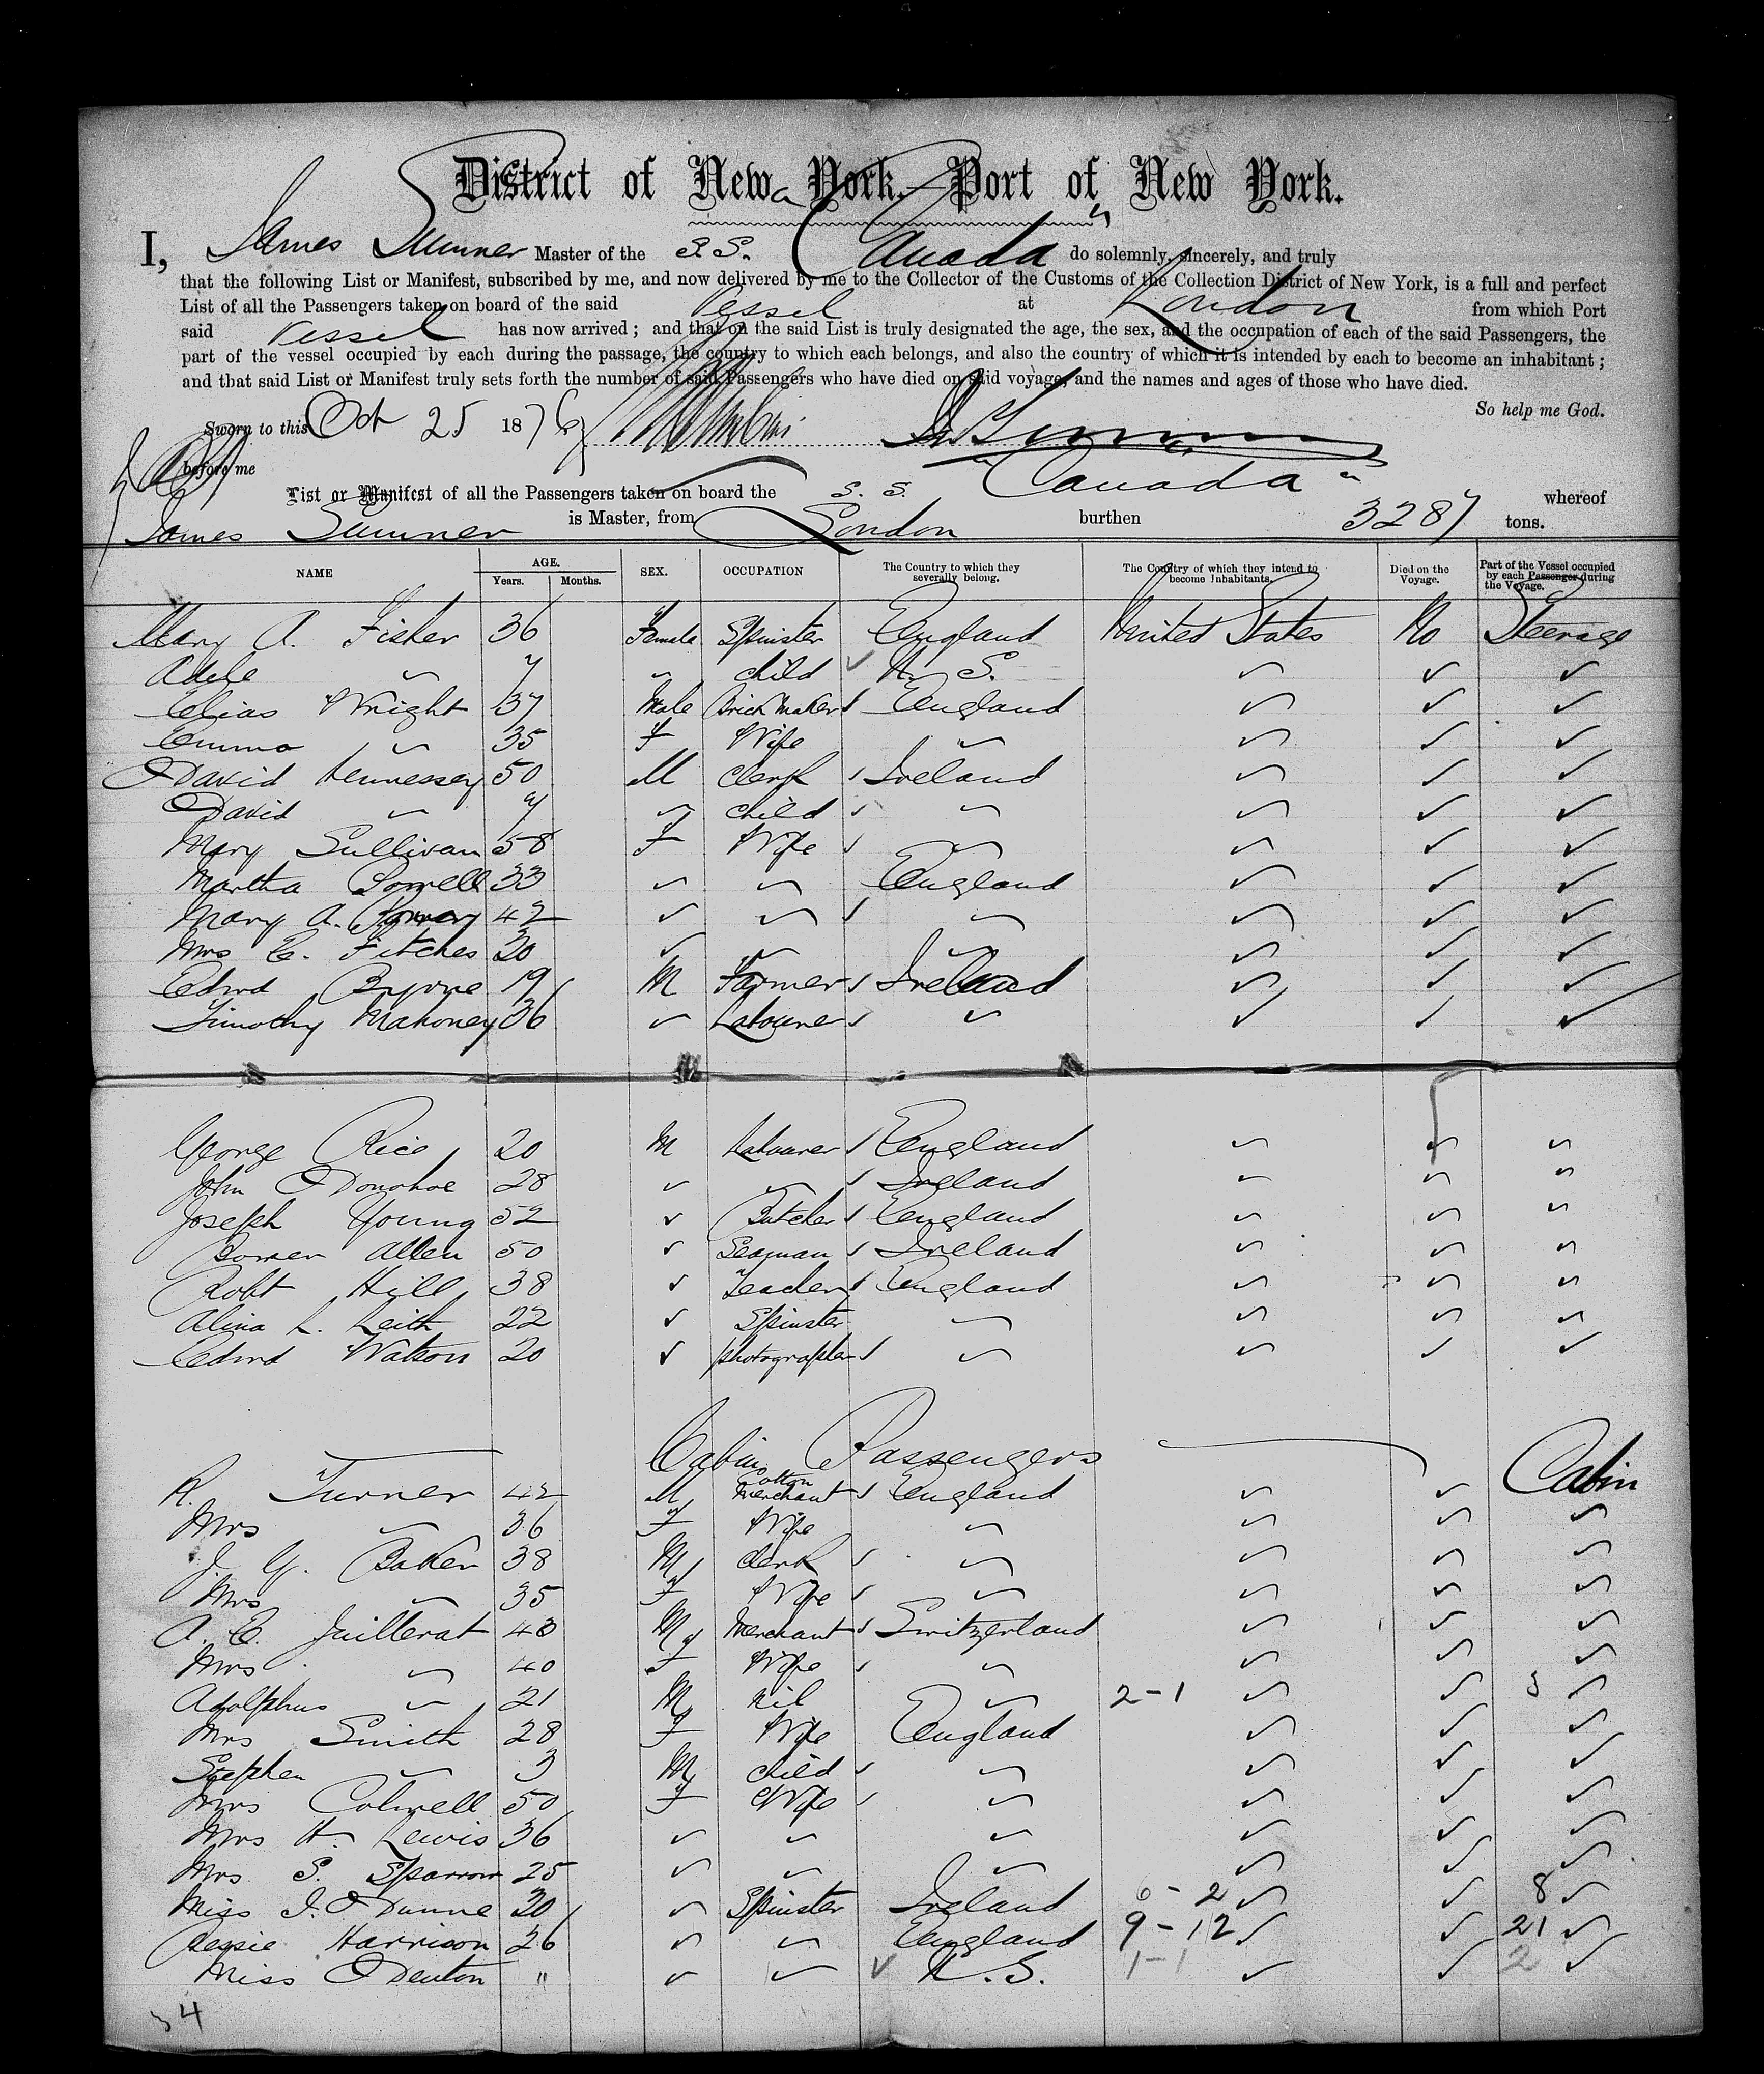 District of New York. Port of New York.
I, James Sumner Master of the S.S. "Canada" do solemnly, sincerely, and truly
that the following List or Manifest, subscribed by me, and now delivered by me to the Collector of the Customs of the Collection District of New York, is a full and perfect
List of all the Passengers taken on board of the said Vessel at London from which Port
said Vessel has now arrived; and that on the said List is truly designated the age, the sex, and the occupation of each of the said Passengers, the
part of the vessel occupied by each during the passage, the country to which each belongs, and also the country of which it is intended by each to become an inhabitant;
and that said List or Manifest truly sets forth the number of said Passengers who have died on said voyage, and the names and ages of those who have died.
So help me God.
Sworn to this Oct 25 1876 Jas Sumner
before me
List or Manifest of all the Passengers taken on board the S.S. "Canada" whereof
James Sumner is Master, from London burthen 3287 tons.
NAME AGE. Years. Months. SEX. OCCUPATION The Country to which they severally belong. The Country of which they intend to become Inhabitants. Died on the Voyage. Part of the Vessel occupied by each Passenger during the Voyage.
Mary A. Fisher 36 Female Spinster England United States No Steerage
Adele " 7 " child ✓ U. S. " ✓ ✓
Elias Wright 37 Male Brick Maker England " ✓ ✓
Emma " 35 F Wife " " ✓ ✓
David Hennessey 50 M Clerk Ireland " ✓ ✓
David " 7 " child " " ✓ ✓
Mary Sullivan 58 F Wife " " ✓ ✓
Martha 33 " " England " ✓ ✓
Mary A. 42 " " " " ✓ ✓
Mrs E. Fitches 30 " " " " ✓ ✓
Edwd Byrne 19 M Farmer Ireland " ✓ ✓
Timothy Mahoney 36 " Labourer " ✓ ✓ ✓
George Rice 20 M Labourer England " " "
John O'Donohoe 28 " " Ireland " " "
Joseph Young 52 " Butcher England " " "
Bowen Allen 50 " Seaman Ireland " " "
Robt Hill 38 " Teacher England " " "
Alina L. Leith 22 " Spinster " " " "
Edwd Watson 20 " photographer " " ✓ ✓
Cabin Passengers
R. Turner 42 M Cotton Merchant England " " Cabin
Mrs " 36 F Wife " " " "
J. G. Baker 38 M Clerk " " " "
Mrs " 35 F Wife " " " "
A. E. Juillerat 43 M Merchant Switzerland " " "
Mrs " 40 F Wife " " " "
Adolphus " 21 M nil " 2-1 " ✓ 3 "
Mrs Smith 28 F Wife England " ✓ ✓
Stephen " 3 M child " " ✓ ✓
Mrs Colwell 50 F Wife " " ✓ ✓
Mrs H. Lewis 36 " " " " ✓ ✓
Mrs S. Sparrow 25 " " " " ✓ ✓
Miss I. O'Dunne 30 " Spinster Ireland 6-2 " ✓ 8 ✓
Bessie Harrison 26 " " England 9-12 ✓ ✓ 21 ✓
Miss O'Denton " " " ✓ U.S. 1-1 " ✓ 2 ✓
34